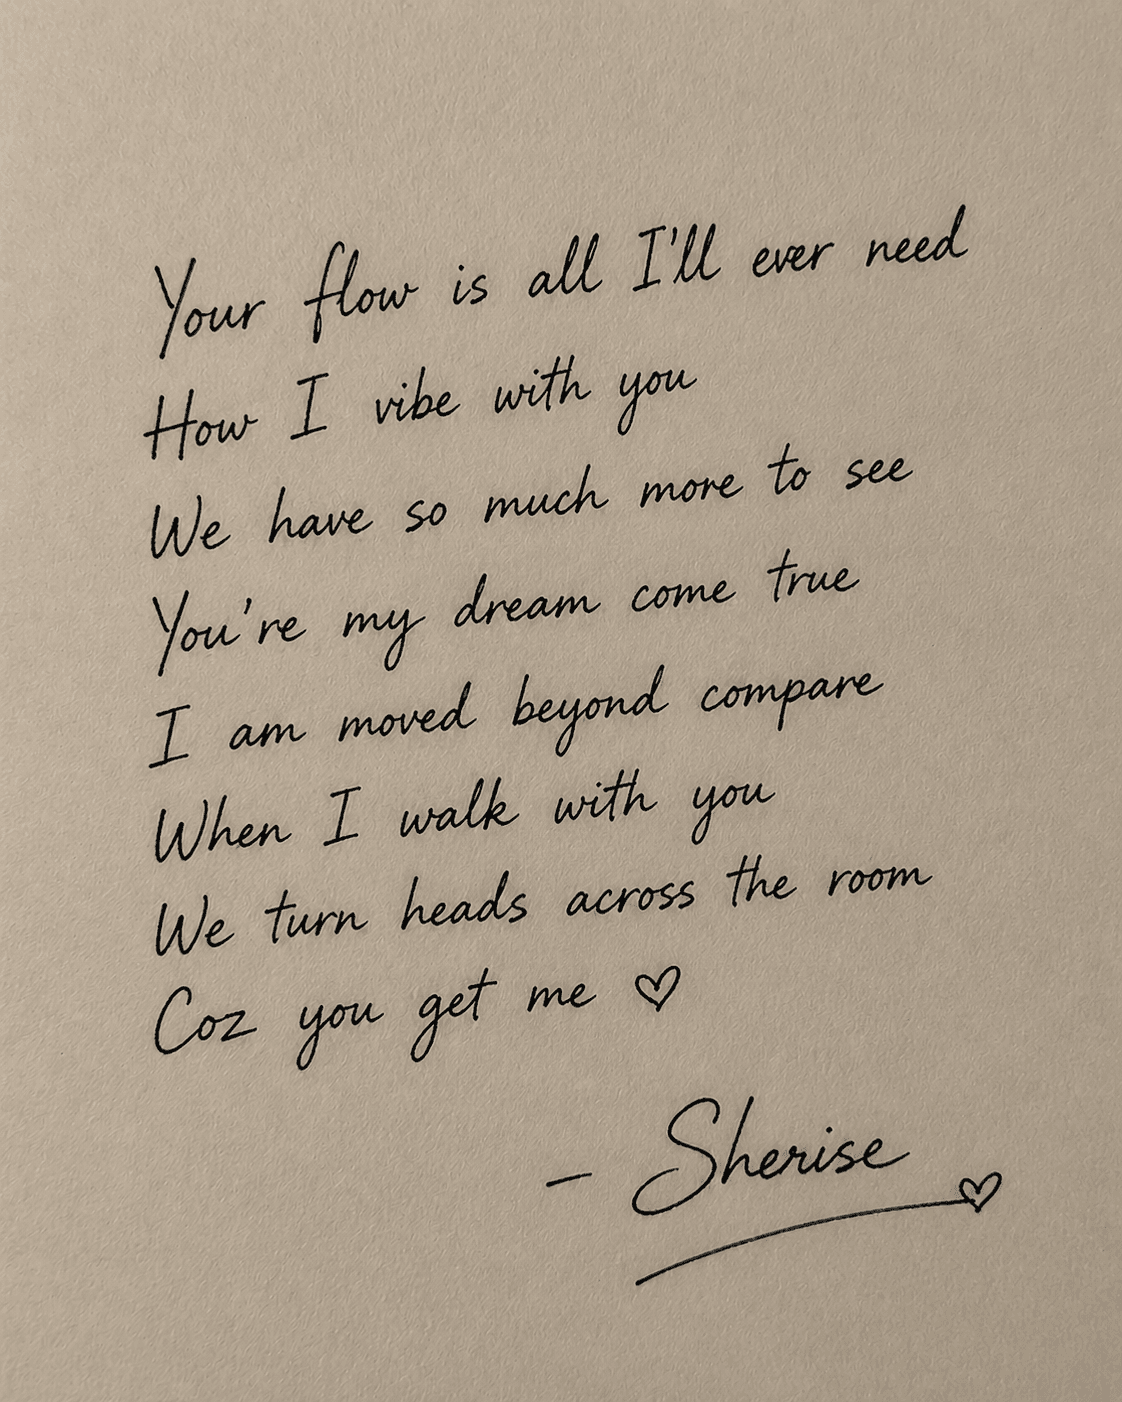 Your flow is all I'll ever need
How I vibe with you
We have so much more to see
You're my dream come true
I am moved beyond compare
When I walk with you
We turn heads across the room
Coz you get me ♡
– Sherise ♡